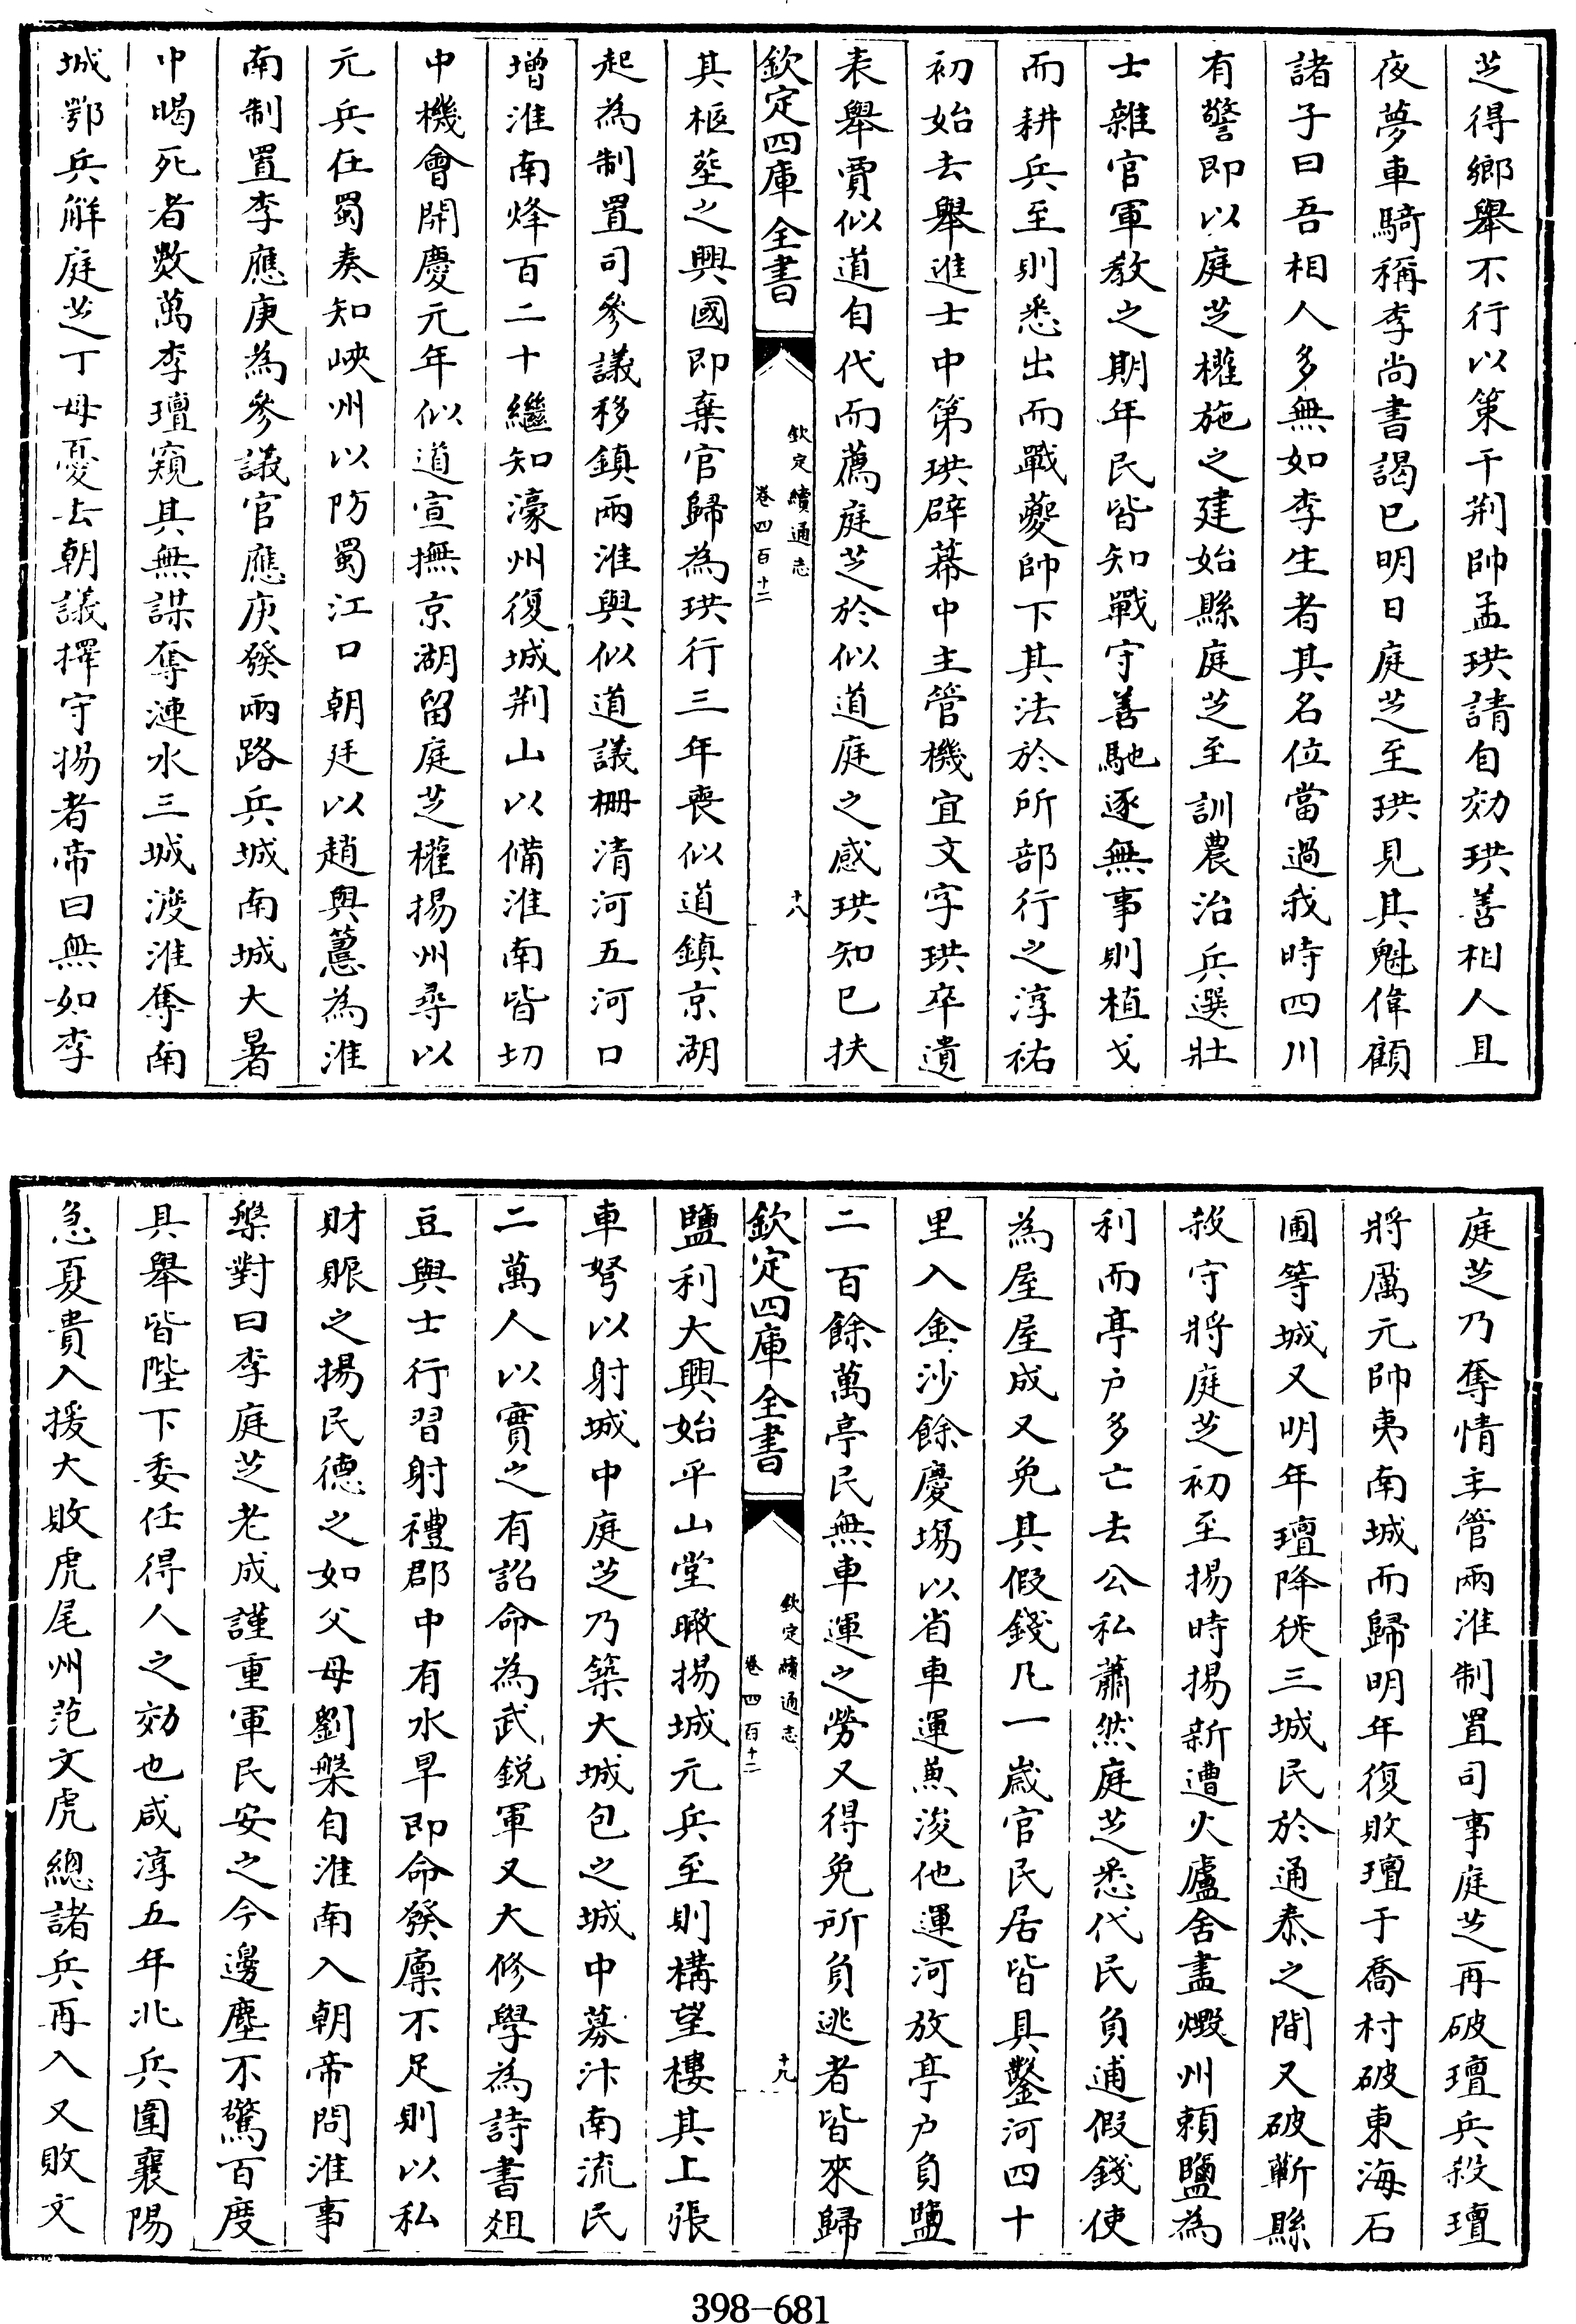 芝得鄉舉不行以策干荆帥孟珙請自効珙善相人且
夜夢車騎稱李尚書謁已明日庭芝至珙見其魁偉顧
諸子曰吾相人多無如李生者其名位當過我時四川
有警即以庭芝權施之建始縣庭芝至訓農治兵選壯
士雜官軍教之期年民皆知戰守善馳逐無事則植戈
而耕兵至則悉出而戰夔帥下其法於所部行之淳祐
初始去舉進士中第珙辟幕中主管機宜文字珙卒遺
表舉賈似道自代而薦庭芝於似道庭之感珙知已扶
欽定四庫全書
欽定續通志
卷四百十二
十八
其柩塟之興國即棄官歸為珙行三年喪似道鎮京湖
起為制置司參議移鎮兩淮與似道議栅清河五河口
增淮南烽百二十繼知濠州復城荆山以備淮南皆切
中機會開慶元年似道宣撫京湖留庭芝權揚州尋以
元兵在蜀奏知峽州以防蜀江口朝廷以趙與藼為淮
南制置李應庚為參議官應庚發兩路兵城南城大暑
中暍死者數萬李璮窺其無謀奪漣水三城渡淮奪南
城鄂兵解庭芝丁母憂去朝議擇守揚者帝曰無如李
庭芝乃奪情主管兩淮制置司事庭芝再破璮兵殺璮
將厲元帥夷南城而歸明年復敗璮于喬村破東海石
圃等城又明年璮降徙三城民於通泰之間又破蘄縣
殺守將庭芝初至揚時揚新遭火廬舍盡燬州賴鹽為
利而亭户多亡去公私蕭然庭芝悉代民負逋假錢使
為屋屋成又免其假錢凡一嵗官民居皆具鑿河四十
里入金沙餘慶場以省車運兼浚他運河放亭户負鹽
二百餘萬亭民無車運之勞又得免所負逃者皆來歸
欽定四庫全書
欽定續通志
卷四百十二
十九
鹽利大興始平山堂瞰揚城元兵至則構望樓其上張
車弩以射城中庭芝乃築大城包之城中募汴南流民
二萬人以實之有詔命為武銳軍又大修學為詩書俎
豆與士行習射禮郡中有水旱即命發廪不足則以私
財賑之揚民德之如父母劉槃自淮南入朝帝問淮事
槃對曰李庭芝老成謹重軍民安之今邊塵不驚百度
具舉皆陛下委任得人之効也咸淳五年北兵圍襄陽
急夏貴入援大敗虎尾州范文虎總諸兵再入又敗文
398-681